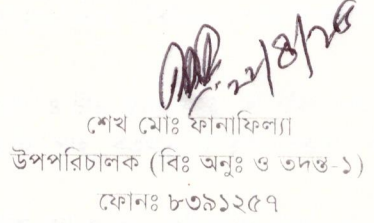 ২২/৪/২৫
শেখ মোঃ ফানাফিল্যা
উপপরিচালক (বিঃ অনুঃ ও তদন্ত-১)
ফোনঃ ৮৩৯১২৫৭